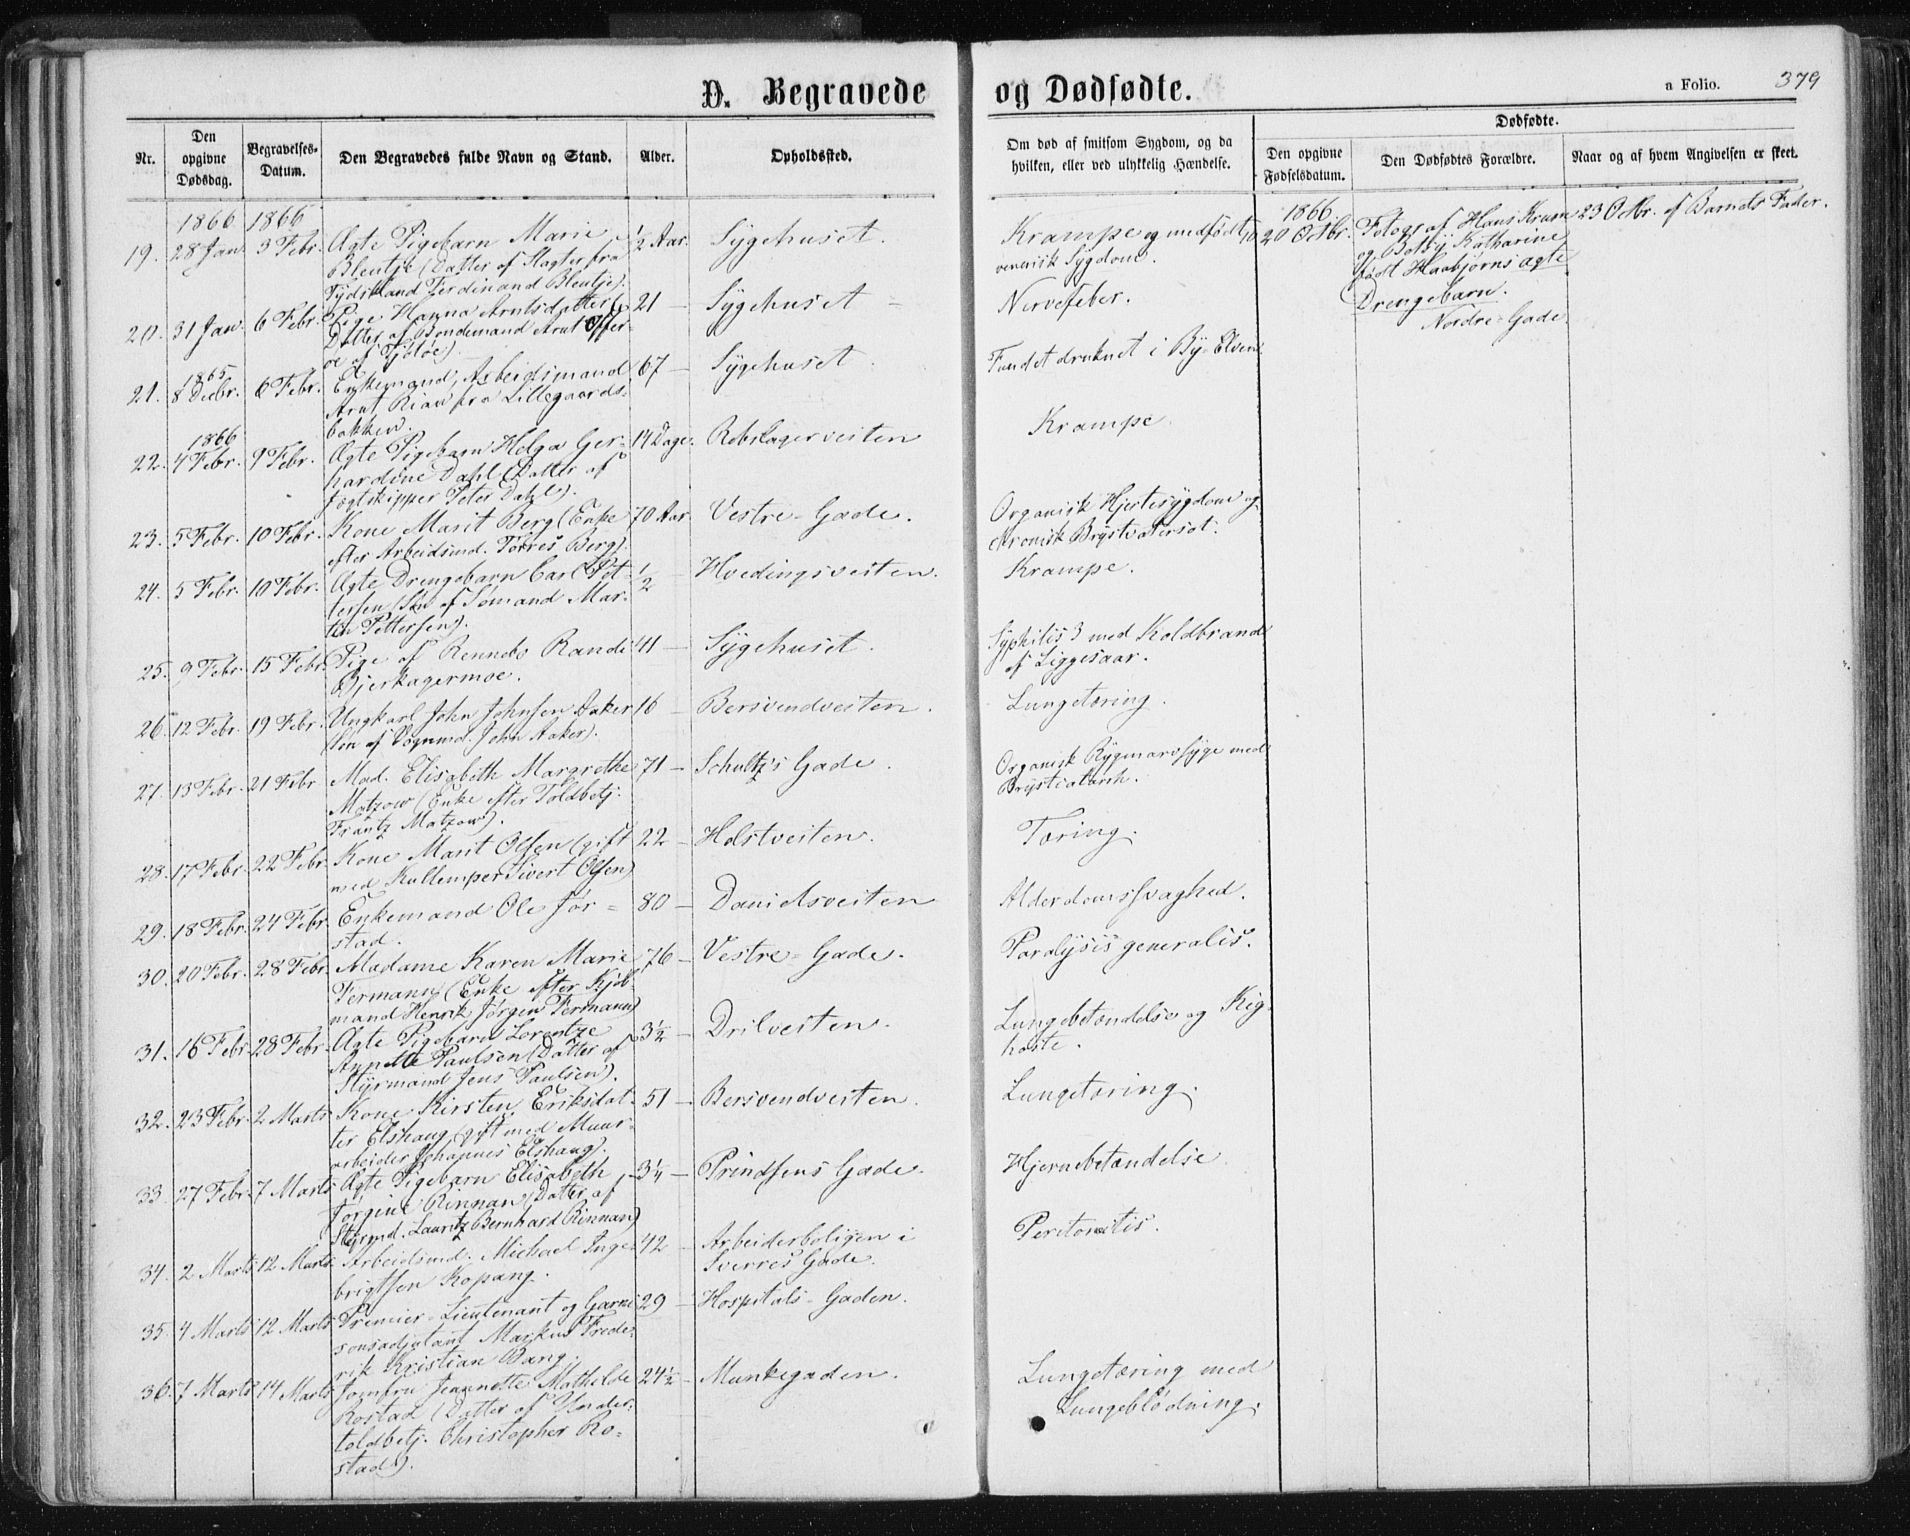 D. Begravede og Dødfødte.
a Folio. 379
Nr. | Den opgivne Dødsdag. | Begravelses-Datum. | Den Begravedes fulde Navn og Stand. | Alder. | Opholdssted. | Om død af smitsom Sygdom, og da hvilken, eller ved ulykkelig Hændelse.
Dødfødte.
Den opgivne Fødselsdatum. | Den Dødfødtes Forældre. | Naar og af hvem Angivelsen er skeet.
1866 1866
19. 28 Jan. 3 Febr. Ægte Pigebarn Marie ½ Aar. Sygehuset. Krampe og medfødt
Bleutje (Datter af Slagter fra venerisk Sygdom.
Tydskland Ferdinand Bleutje).
20. 31 Jan. 6 Febr. Pige Hanna Arntsdatter 21 — Sygehuset — Nervefeber.
Datter af Bondemand Arnt
1865
21. 8 Decbr. 6 Febr. Enkemand, Arbeidsmand 67 — Sygehuset. Fundet druknet i By-Elven
Arnt Rian fra Lillegaards-
bakken.
1866
22. 4 Febr. 9 Febr. Ægte Pigebarn Helga Ger- 14 Dage. Rebslagerveiten Krampe
hardine Dahl (Datter af
Jægtskipper Peter Dahl).
23. 5 Febr. 10 Febr. Kone Marit Berg (Enke 70 Aar. Vestre-Gade. Organisk Hjertesygdom og
efter Arbeidsmd. Torres Berg). chronisk Brystvatersot.
24. 5 Febr. 10 Febr. Ægte Drengebarn Carl Pet- ½ — Hvedingsveiten. Krampe.
tersen (Søn af Sømand Mar-
tin Pettersen).
25. 9 Febr. 15 Febr. Pige af Rennebo Randi 41 — Sygehuset. Syphilis 3 med Koldbrand
Bjerkagermoe. af Liggesaar.
26. 12 Febr. 19 Febr. Ungkarl John Johnsen Aaker 16 — Bersvendveiten. Lungetæring.
(Søn af Vognmd. John Aaker).
27. 13 Febr. 21 Febr. Mad. Elisabeth Margrethe 71 — Schultz's Gade. Organisk Rygmarvsyge med
Matzow (Enke efter Toldbetj. Brystcatarrh.
Frantz Matzow).
28. 17 Febr. 22 Febr. Kone Marit Olsen (gift 22 — Holstveiten. Tæring.
med Kullemper Sivert Olsen)
29. 18 Febr. 24 Febr. Enkemand Ole Jør- 80 — Danielsveiten Alderdomssvaghed.
stad.
30. 20 Febr. 28 Febr. Madame Karen Marie 76 — Vestre-Gade. Paralysis generalis.
Fermann (Enke efter Kjøb-
mand Henrik Jørgen Fermann)
31. 16 Febr. 28 Febr. Ægte Pigebarn Lorentze 3½ — Drilveiten. Lungebetændelse og Kig-
Annette Paulsen (Datter af hoste.
Styrmand Jens Paulsen).
32. 23 Febr. 2 Marts Kone Kirsten Eriksdat- 51 — Bersvendveiten. Lungetæring.
ter Elshaug (gift med Muur-
arbeider Johannes Elshaug).
33. 27 Febr. 7 Marts Ægte Pigebarn Elisabeth ¾ — Prindsens Gade. Hjernebetændelse
Jørgine Rinnan (Datter af
Styrmd. Lauritz Bernhard Rinnan)
34. 2 Marts 12 Marts Arbeidsmd. Michael Inge- 42 — Arbeiderboligen i Peritonitis.
brigtsen Kopang. Sverres Gade.
35. 4 Marts 12 Marts Premier-Lieutenant og Garni- 29 — Hospitals-Gaden.
sonsadjutant Markus Frede-
rik Kristian Bang.
36. 7 Marts 14 Marts Jomfru Jeannette Mathilde 24½ — Munkegaden. Lungetæring med
Rostad (Datter af Under- Lungeblødning.
toldbetj. Christopher Ro-
stad).
1866
20 Octbr. Fotograf Hans Krum 23 Octbr. af Barnets Fader.
og Betsy Katharine
født Haabjørns ægte
Drengebarn.
Nordre-Gade.